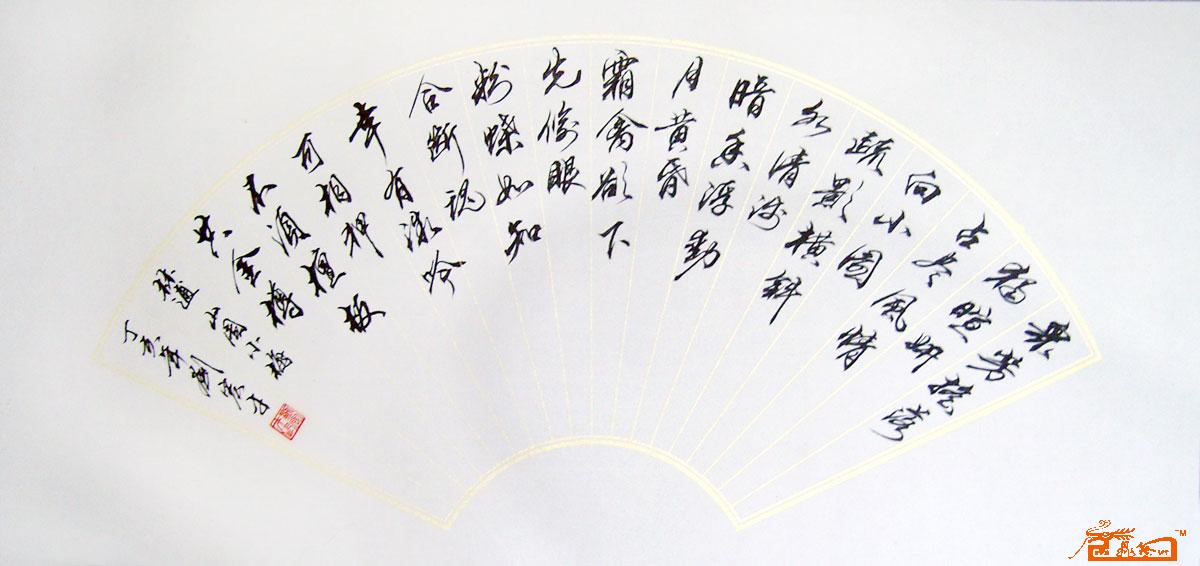 衆芳摇落
獨暄妍
占尽風情
向小園
疏影横斜
水清浅
暗香浮動
月黄昏
霜禽欲下
先偷眼
粉蝶如知
合断魂
幸有微吟
可相狎
不須檀板
共金樽
林逋 山園小梅
丁亥年劉